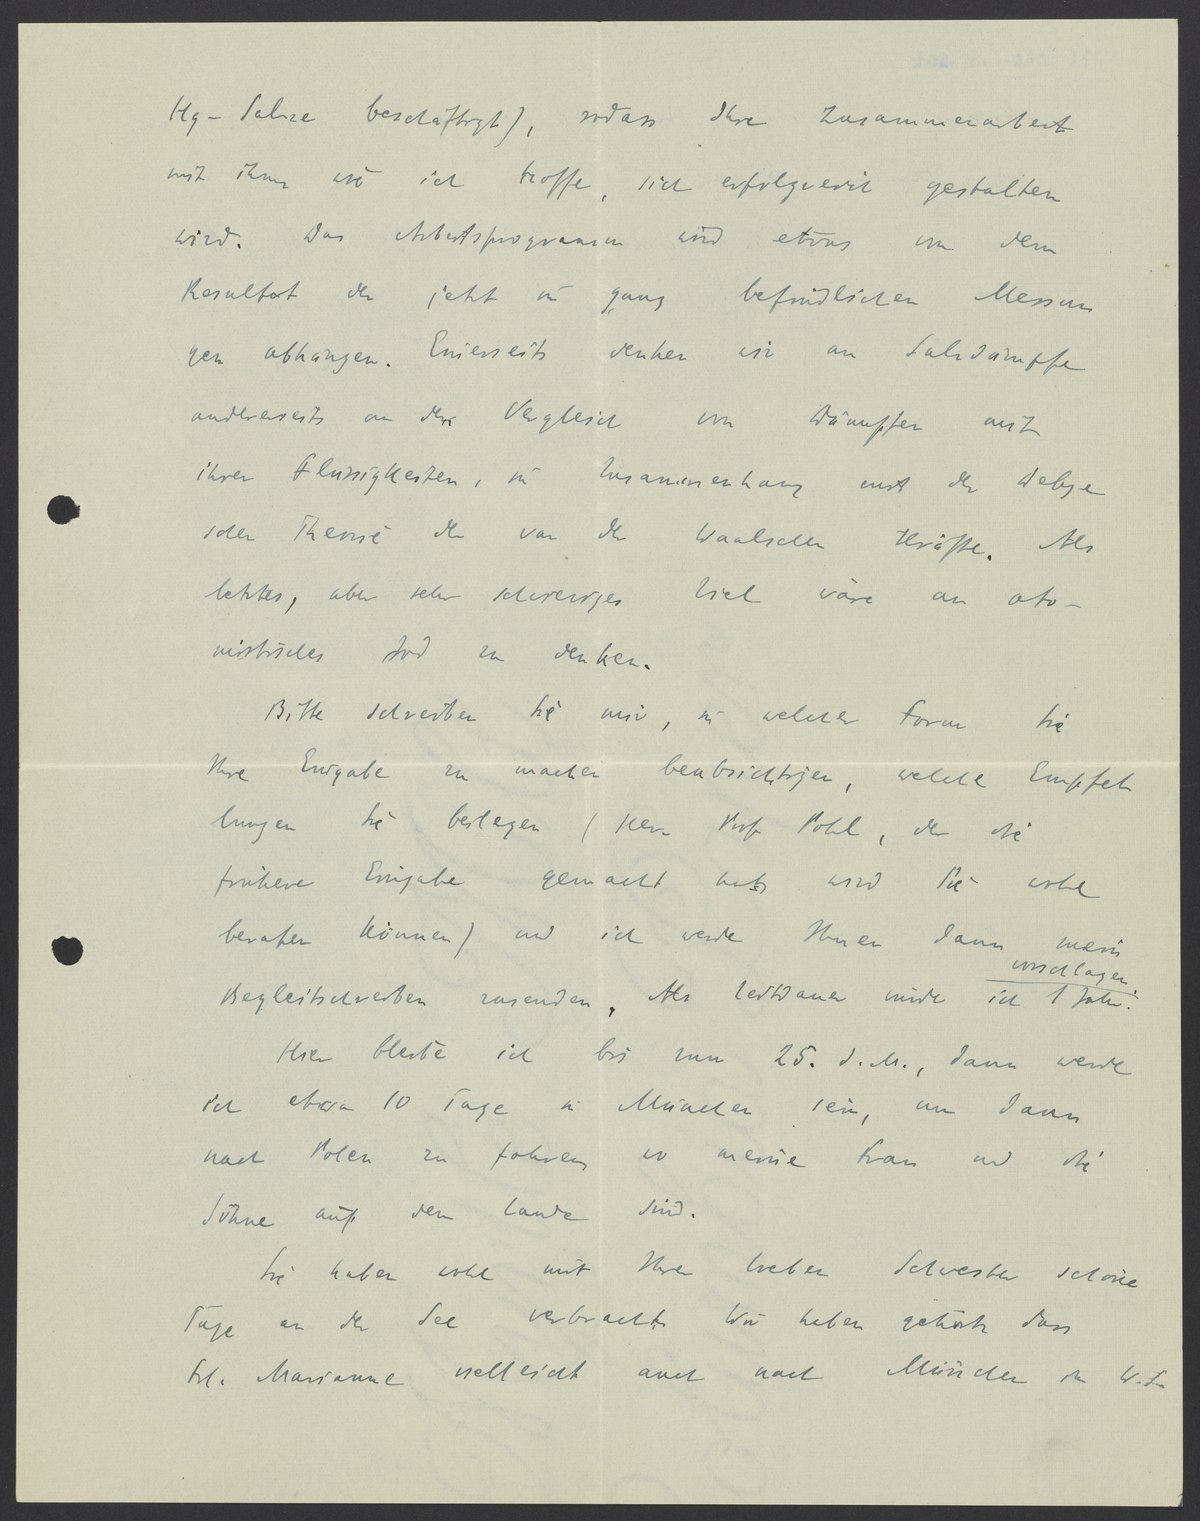 Hg-Salze beschäftigt), sodass Ihre Zusammenarbeit
mit ihm wie ich hoffe, sich erfolgreich gestalten
wird. Das Arbeitsprogramm wird etwas von dem
Resultat der jetzt in gang befindlichen Messun
gen abhängen. Einerseits denken wir an Salzdämpfe
andererseits an den Vergleich von Dämpfen mit
ihren Flüssigkeiten, im Zusammenhang mit der Debye
schen Theorie der van der Waalschen Kräfte. Als
letztes, aber sehr schwieriges Ziel wäre an ato-
mistisches Jod zu denken.
Bitte schreiben Sie mir, in welcher Form Sie
Ihre Eingabe zu machen beabsichtigen, welche Empfeh
lungen Sie beilegen (Herr Prof Pohl, der die
frühere Eingabe gemacht hat, wird Sie wohl
beraten können) und ich werde Ihnen dann mein
vorschlagen.
Begleitschreiben zusenden. Als Zeitdauer würde ich 1 Jahr
Hier bleibe ich bis zum 25. d. M., dann werde
ich etwa 10 Tage in München sein, um dann
nach Polen zu fahren, wo meine Frau und die
Söhne auf dem Lande sind.
Sie haben wohl mit Ihrer lieben Schwester schöne
Tage an der See verbracht. Wir haben gehört dass
Frl. Marianne vielleicht auch nach München im W.S.